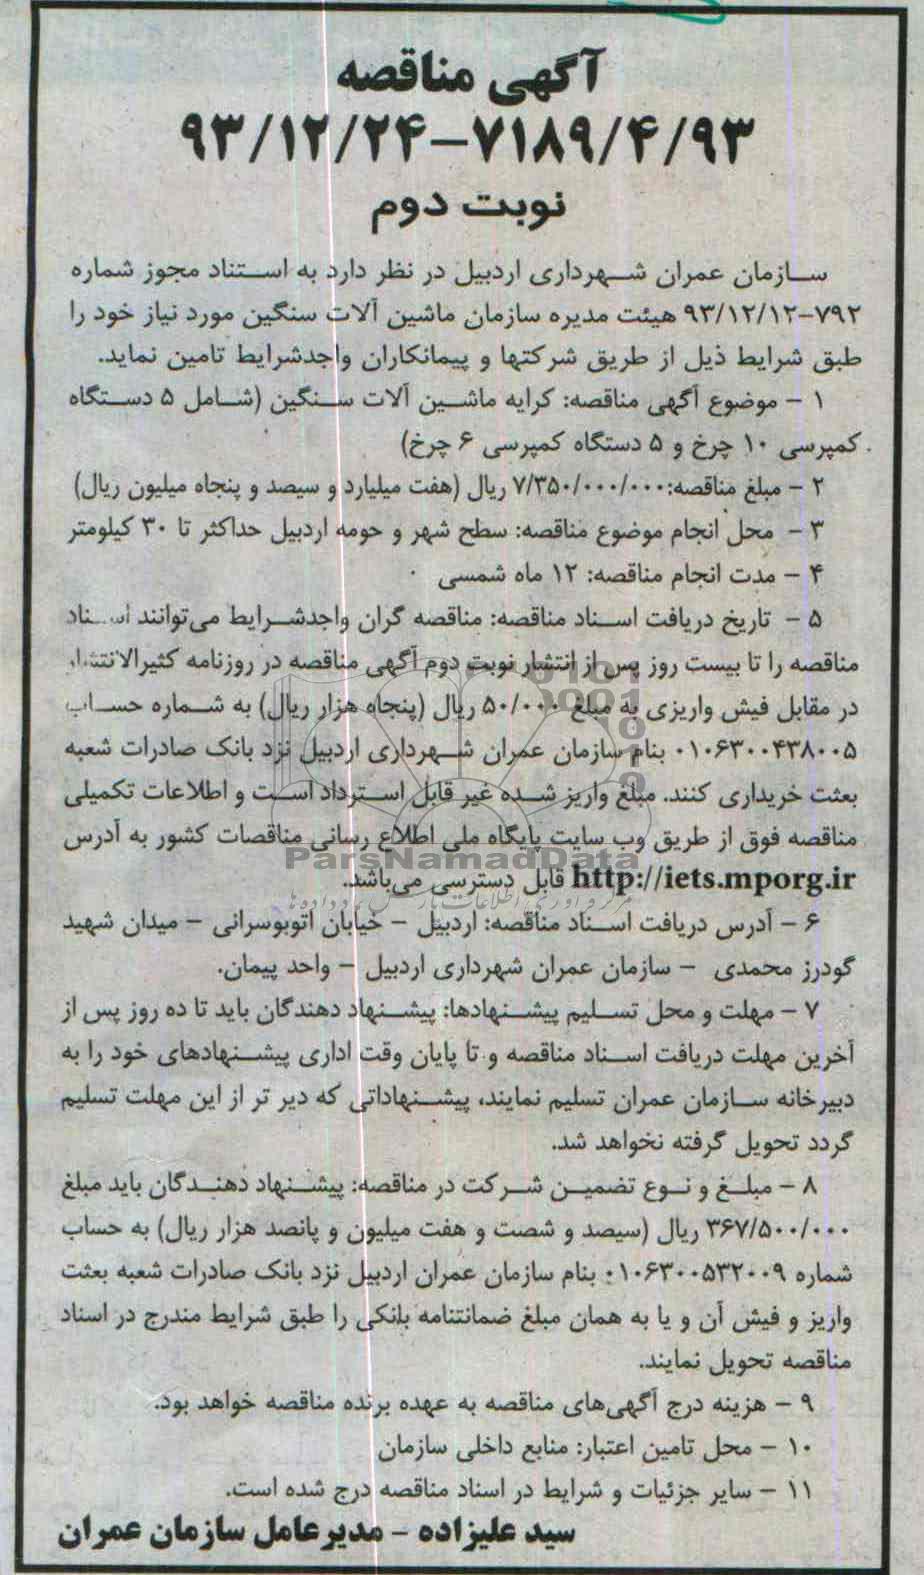 آگهی مناقصه
۹۳/۱۲/۲۴-۷۱۸۹/۴/۹۳
نوبت دوم
سازمان عمران شهرداری اردبیل در نظر دارد به استناد مجوز شماره
۷۹۲-۹۳/۱۲/۱۲ هیئت مدیره سازمان ماشین آلات سنگین مورد نیاز خود را
طبق شرایط ذیل از طریق شرکتها و پیمانکاران واجدشرایط تامین نماید.
۱ - موضوع آگهی مناقصه: کرایه ماشین آلات سنگین (شامل ۵ دستگاه
کمپرسی ۱۰ چرخ و ۵ دستگاه کمپرسی ۶ چرخ)
۲ - مبلغ مناقصه:۷/۳۵۰/۰۰۰/۰۰۰ ریال (هفت میلیارد و سیصد و پنجاه میلیون ریال)
۳ - محل انجام موضوع مناقصه: سطح شهر و حومه اردبیل حداکثر تا ۳۰ کیلومتر
۴ - مدت انجام مناقصه: ۱۲ ماه شمسی
۵ - تاریخ دریافت اسناد مناقصه: مناقصه گران واجدشرایط می‌توانند اسناد
مناقصه را تا بیست روز پس از انتشار نوبت دوم آگهی مناقصه در روزنامه کثیرالانتشار
در مقابل فیش واریزی به مبلغ ۵۰/۰۰۰ ریال (پنجاه هزار ریال) به شماره حساب
۰۱۰۶۳۰۰۴۳۸۰۰۵ بنام سازمان عمران شهرداری اردبیل نزد بانک صادرات شعبه
بعثت خریداری کنند. مبلغ واریز شده غیر قابل استرداد است و اطلاعات تکمیلی
مناقصه فوق از طریق وب سایت پایگاه ملی اطلاع رسانی مناقصات کشور به آدرس
ParsNamadData
http://iets.mporg.ir قابل دسترسی می‌باشد.
۶ - آدرس دریافت اسناد مناقصه: اردبیل - خیابان اتوبوسرانی - میدان شهید
گودرز محمدی - سازمان عمران شهرداری اردبیل - واحد پیمان.
۷ - مهلت و محل تسلیم پیشنهادها: پیشنهاد دهندگان باید تا ده روز پس از
آخرین مهلت دریافت اسناد مناقصه و تا پایان وقت اداری پیشنهادهای خود را به
دبیرخانه سازمان عمران تسلیم نمایند، پیشنهاداتی که دیر تر از این مهلت تسلیم
گردد تحویل گرفته نخواهد شد.
۸ - مبلغ و نوع تضمین شرکت در مناقصه: پیشنهاد دهندگان باید مبلغ
۳۶۷/۵۰۰/۰۰۰ ریال (سیصد و شصت و هفت میلیون و پانصد هزار ریال) به حساب
شماره ۰۱۰۶۳۰۰۵۳۲۰۰۹ بنام سازمان عمران اردبیل نزد بانک صادرات شعبه بعثت
واریز و فیش آن و یا به همان مبلغ ضمانتنامه بانکی را طبق شرایط مندرج در اسناد
مناقصه تحویل نمایند.
۹ - هزینه درج آگهی‌های مناقصه به عهده برنده مناقصه خواهد بود.
۱۰ - محل تامین اعتبار: منابع داخلی سازمان
۱۱ - سایر جزئیات و شرایط در اسناد مناقصه درج شده است.
سید علیزاده - مدیرعامل سازمان عمران